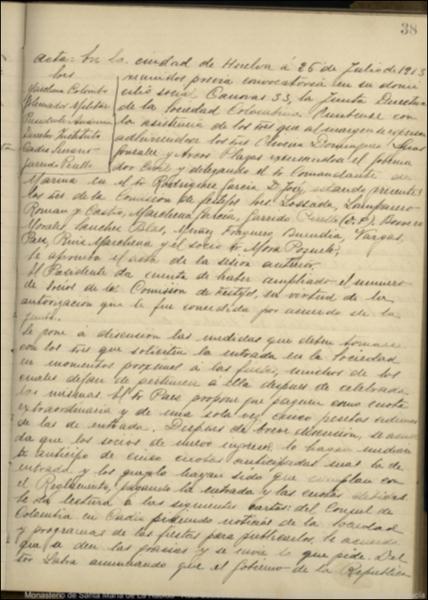 38
Acta: En la ciudad de Huelva á 26 de Julio de 1913
Sres
Marchena Colombo
Gobernador Militar
Presidente Audiencia
Director Instituto
Cádiz Serrano
Garrido Perelló
reunidos previa convocatoria en su domi-
cilio social Canovas 33, la Junta Directiva
de la Sociedad Colombina Onubense con
la asistencia de los Sres que al margen se expresan
adhiriendose los Sres Oliveira Dominguez,
Gonzalez y Arcos Plazas excusandose el Goberna-
dor Civil y delegando el Sr Comandante de
Marina en el Sr Rodriguez Garcia D. José, estando presentes
los Sres de la Comision de festejos Sres Lossada,
Roman y Castro, Marchena Garcia, Garrido Perelló
Morales, Sanchez Blas, Muñoz, Buendia, Vargas,
Paez, Ruiz Marchena y el socio Sr Mora Pozuelo;
Se aprueba el acta de la sesión anterior.
El Presidente da cuenta de haber ampliado el numero
de socios de la Comision de Festejos, en virtud de la
autorizacion que le fue concedida por acuerdo de la
Junta.
Se pone á discusion las medidas que deben tomarse
con los Sres que solicitan la entrada en la Sociedad
en momentos proximos á las fiestas, muchos de los
cuales dejan de pertenecer á ella despues de celebradas
las mismas. El Sr Paez propone que paguen como cuota
extraordinaria y de una sola vez cinco pesetas ademas
de las de entrada. Despues de breve discusion, se acuer-
da que los socios de nuevo ingreso lo hagan median-
te anticipo de cinco cuotas anticipadas mas la de
entrada y los que ya hayan sido que cumplan con
el Reglamento, pagando la entrada y las cuotas debidas.
Se da lectura á las siguientes cartas: del Consul de
Colombia en Cadiz pidiendo noticias de la Sociedad
y programas de las fiestas para publicarlos, se acuerda
que se den las gracias y se envie lo que pide. Del
Sr Labra anunciando que el Gobierno de la Republica
Monasterio de Santa María de La Rábida